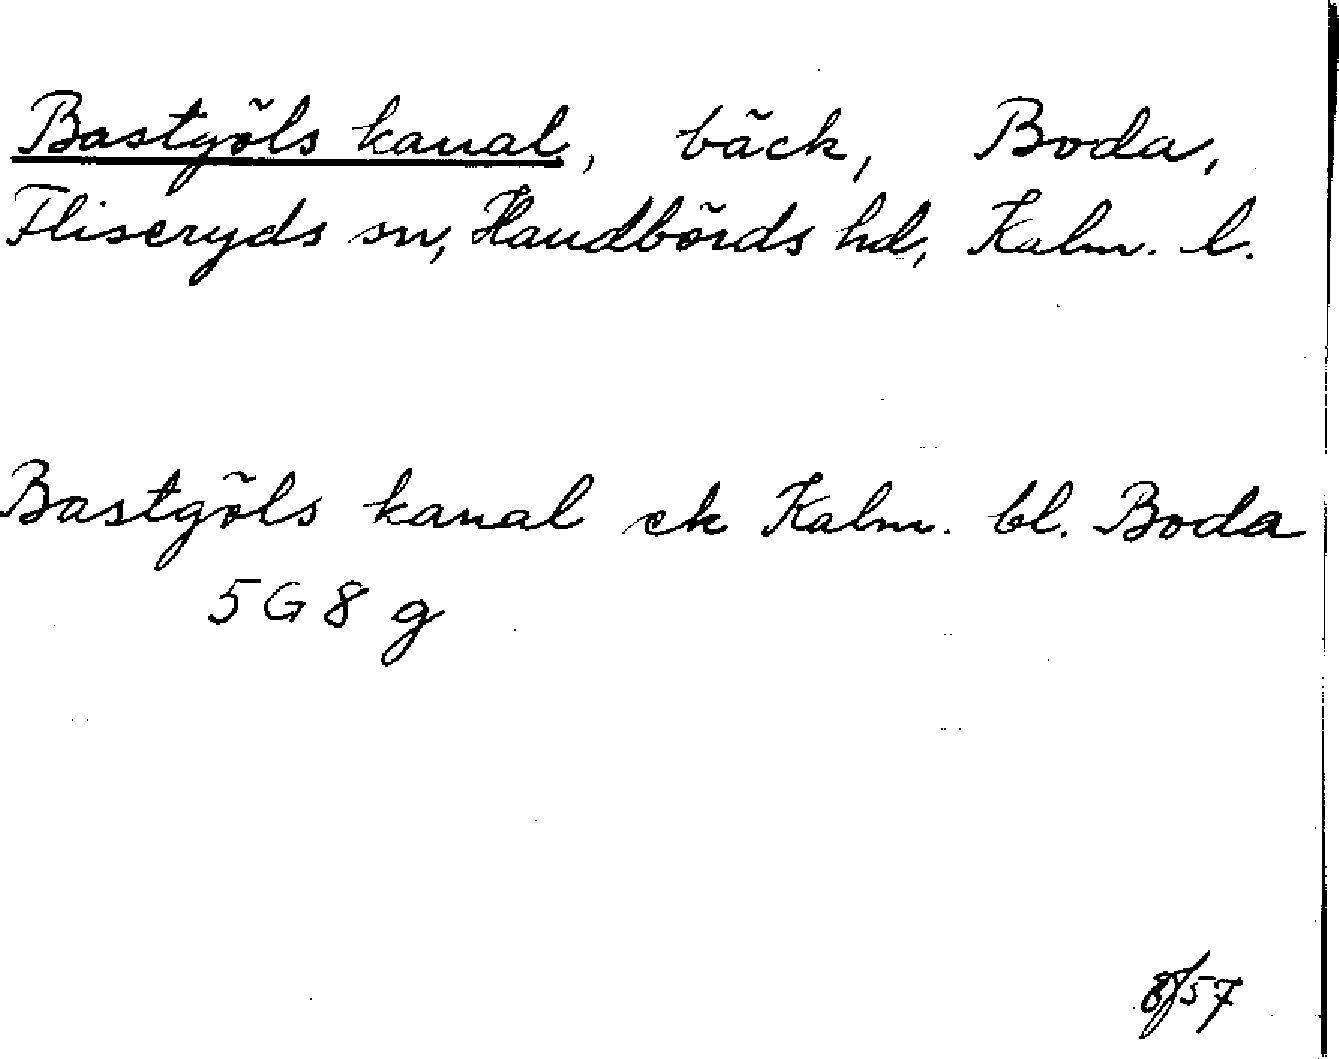 Bastgöls kanal, bäck, Boda,
Fliseryds sn, Handbörds hd, Kalm. l.
Bastgöls kanal ek Kalm. bl. Boda
5G8g
8/57